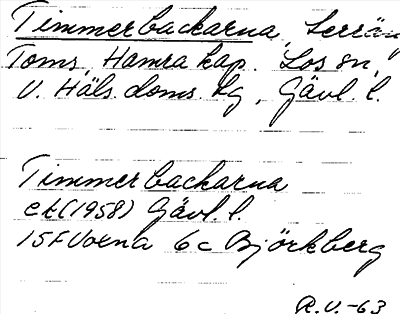 Timmerbackarna, terräng
Toms. Hamra kap. Los sn,
V. Häls. doms. hg, Gävl. l.
Timmerbackarna
ek (1958) Gävl. l.
15F Voxna 6c Björkberg
R.V.-63